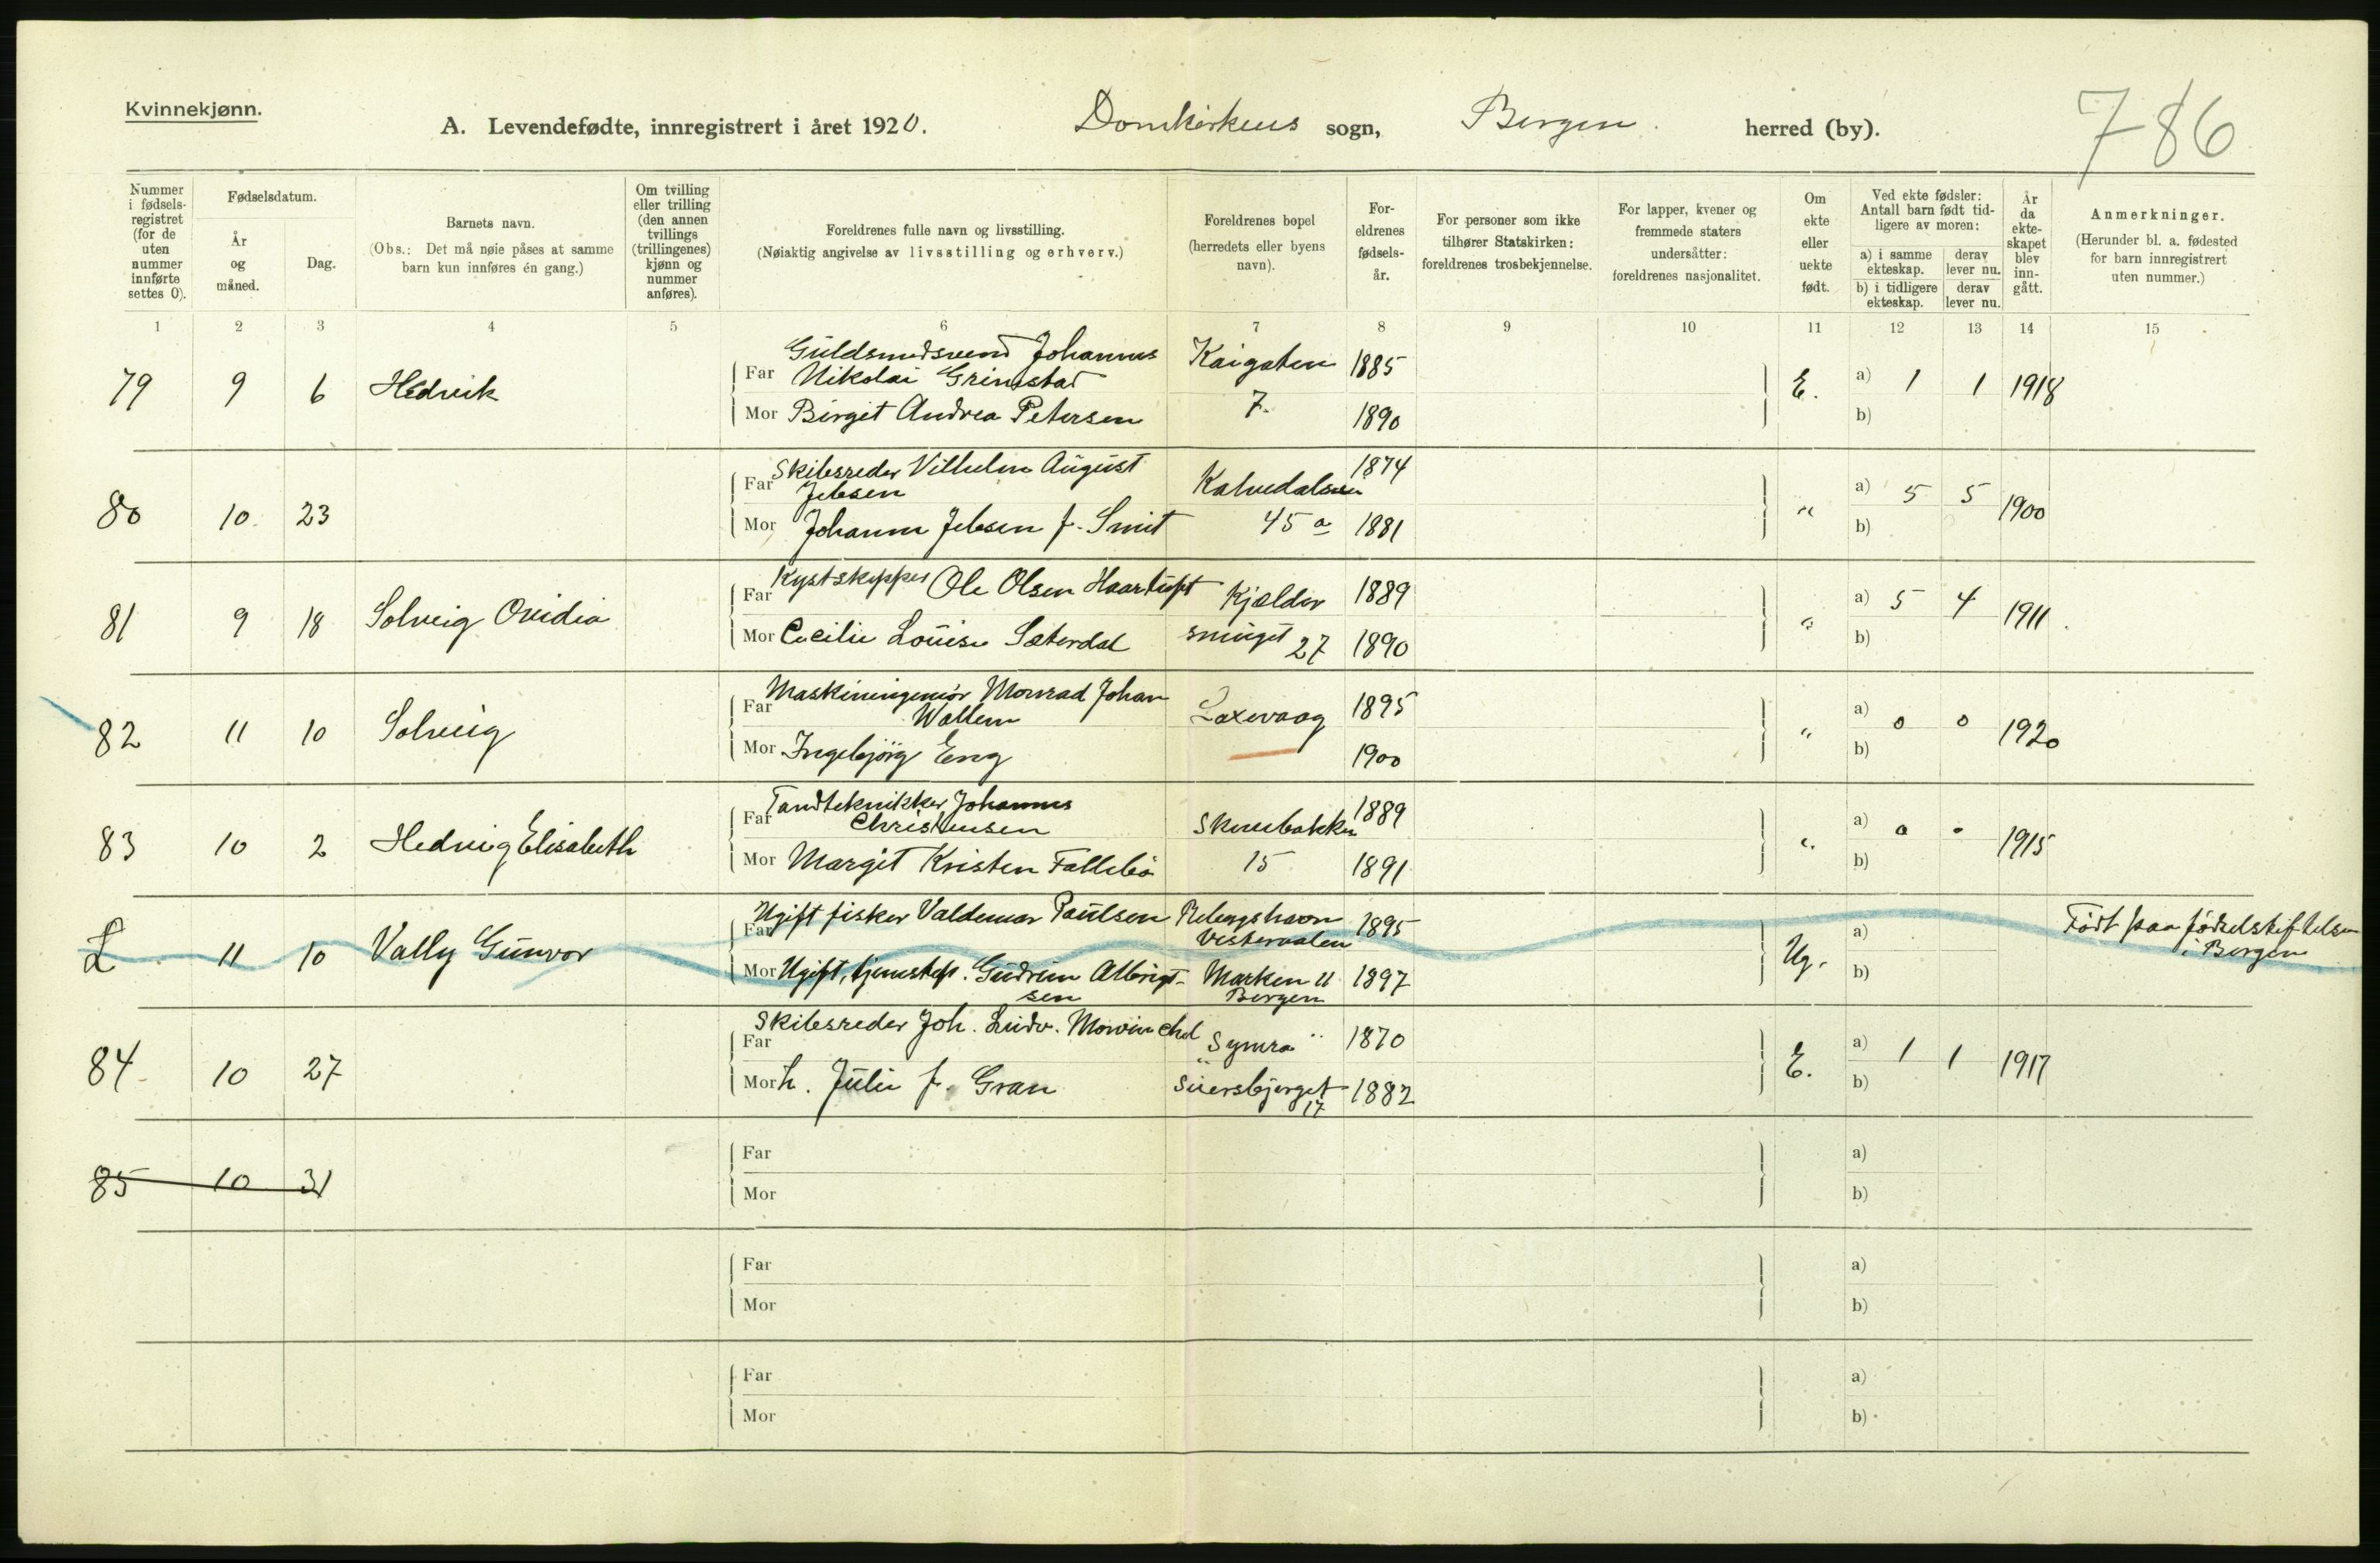 Kvinnekjønn.
A. Levendefødte, innregistrert i året 1920. Domkirkens sogn, Bergen. herred (by). 786
Nummer i fødselsregistret (for de uten nummer innførte settes 0).
Fødselsdatum.
År og måned.
Dag.
Barnets navn.
(Obs.: Det må nøie påses at samme barn kun innføres én gang.)
Om tvilling eller trilling (den annen tvillings (trillingenes) kjønn og nummer anføres).
Foreldrenes fulle navn og livsstilling.
(Nøiaktig angivelse av livsstilling og erhverv.)
Foreldrenes bopel (herredets eller byens navn).
Foreldrenes fødselsår.
For personer som ikke tilhører Statskirken: foreldrenes trosbekjennelse.
For lapper, kvener og fremmede staters undersåtter: foreldrenes nasjonalitet.
Om ekte eller uekte født.
Ved ekte fødsler: Antall barn født tidligere av moren:
a) i samme ekteskap. derav lever nu.
b) i tidligere ekteskap. derav lever nu.
År da ekteskapet blev inngått.
Anmerkninger.
(Herunder bl. a. fødested for barn innregistrert uten nummer.)
1 2 3 4 5 6 7 8 9 10 11 12 13 14 15
79 9 6 Hedvik
Far Guldsmedsvend Johannes Nikolai Grimstad Kaigaten 1885
Mor Birget Andrea Petersen 7. 1890
E. a) 1 1 1918
b)
80 10. 23
Far Skibsreder Vilhelm August Jebsen Kalvedalsveien 1874
Mor Johanne Jebsen f. Smit 45 a 1881
" a) 5 5 1900
b)
81 9 18 Solveig Ovidia
Far Kystskipper Ole Olsen Haartuft Kjælder 1889
Mor Cecilie Louise Sæterdal smuget 27 1890
" a) 5 4 1911.
b)
82 11 10 Solveig
Far Maskiningeniør Monrad Johan Wallem Laxevaag 1895
Mor Ingebjørg Eng 1900
" a) 0 0 1920
b)
83 10 2 Hedvig Elisabeth
Far Tandtekniker Johannes Christensen Skivebakken 1889
Mor Margit Kristen Falleb­ø 15 1891
" a) 0 0 1915
b)
L 11 10 Vally Gunvor
Far Ugift fisker Valdemar Paulsen Vesteraalen 1895
Mor Ugift, tjenestep. Gudrun Albrigtsen Marken 11 Bergen 1897
Ug. a)
b)
Født paa fødselstiftelsen i Bergen
84. 10 27
Far Skibsreder Joh. Ludv. Mowinckel "Symra" 1870
Mor h. Julie f. Gran 17 1882
E. a) 1 1 1917
b)
85 10 31
Far
Mor
a)
b)
Far
Mor
a)
b)
Far
Mor
a)
b)